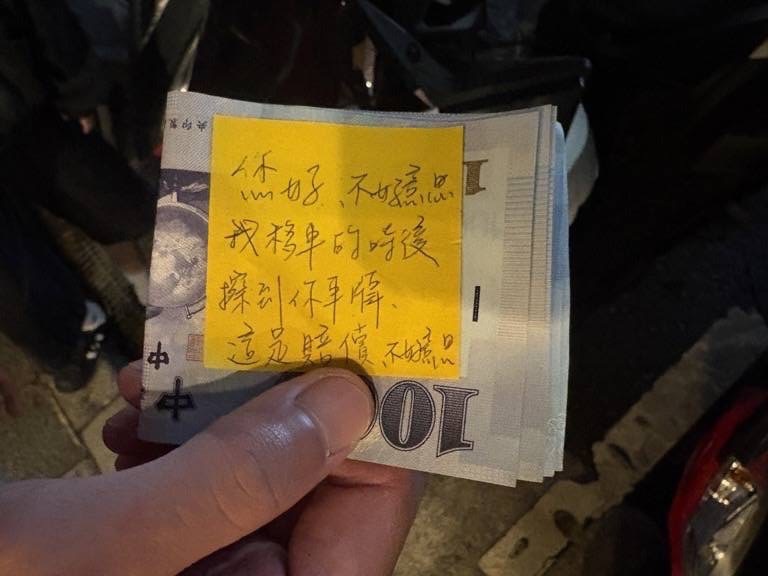 您好、不好意思
我移車的時後
擦到你車牌、
這是賠償、不好意思
中
中
100